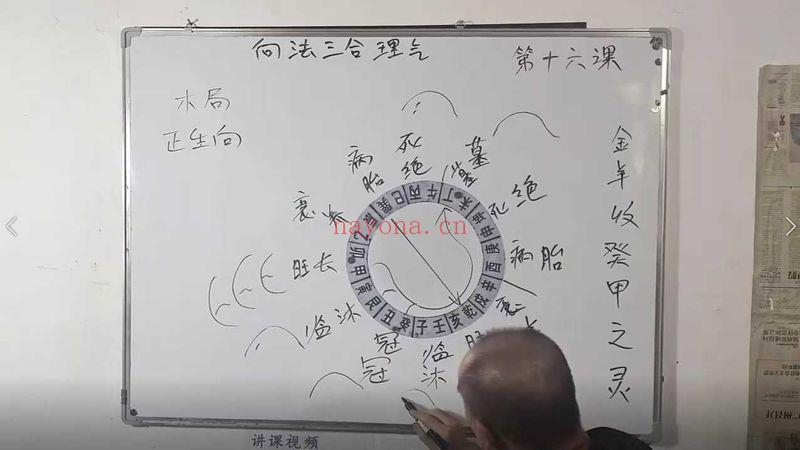 向法三合理气
第十六课
木局
正生向
金羊收癸甲之灵
病
死
墓
胎
绝
绝
死
衰
旺长
病胎
临沐
冠
临
冠
沐
丁
午
丙
巳
巽
乙
卯
甲
寅
艮
丑
癸
子
壬
亥
乾
戌
辛
酉
庚
申
坤
未
nayona.cn
讲课视频